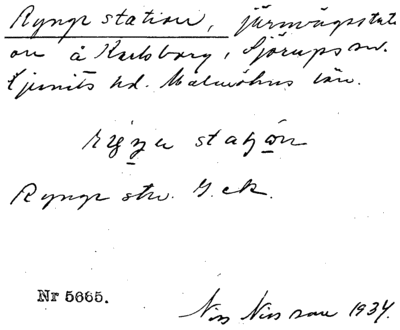 Rynge station, järnvägsstati
on å Karlsborg, Sjörups sn.
Ljunits hd. Malmöhus län.
station
Rynge stn. G.ek.
Nr 5665.
Nils Nilsson 1934.